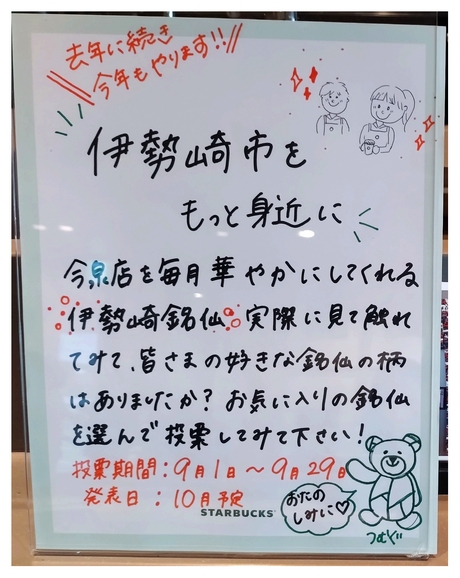 去年に続き
今年もやります!!
伊勢崎市を
もっと身近に
今泉店を毎月華やかにしてくれる
伊勢崎銘仙。実際に見て触れ
てみて、皆さまの好きな銘仙の柄
はありましたか?お気に入りの銘仙
を選んで投票してみて下さい!
投票期間:9月1日~9月29日
発表日:10月予定
STARBUCKS
おたの
しみに♡
つむぐ